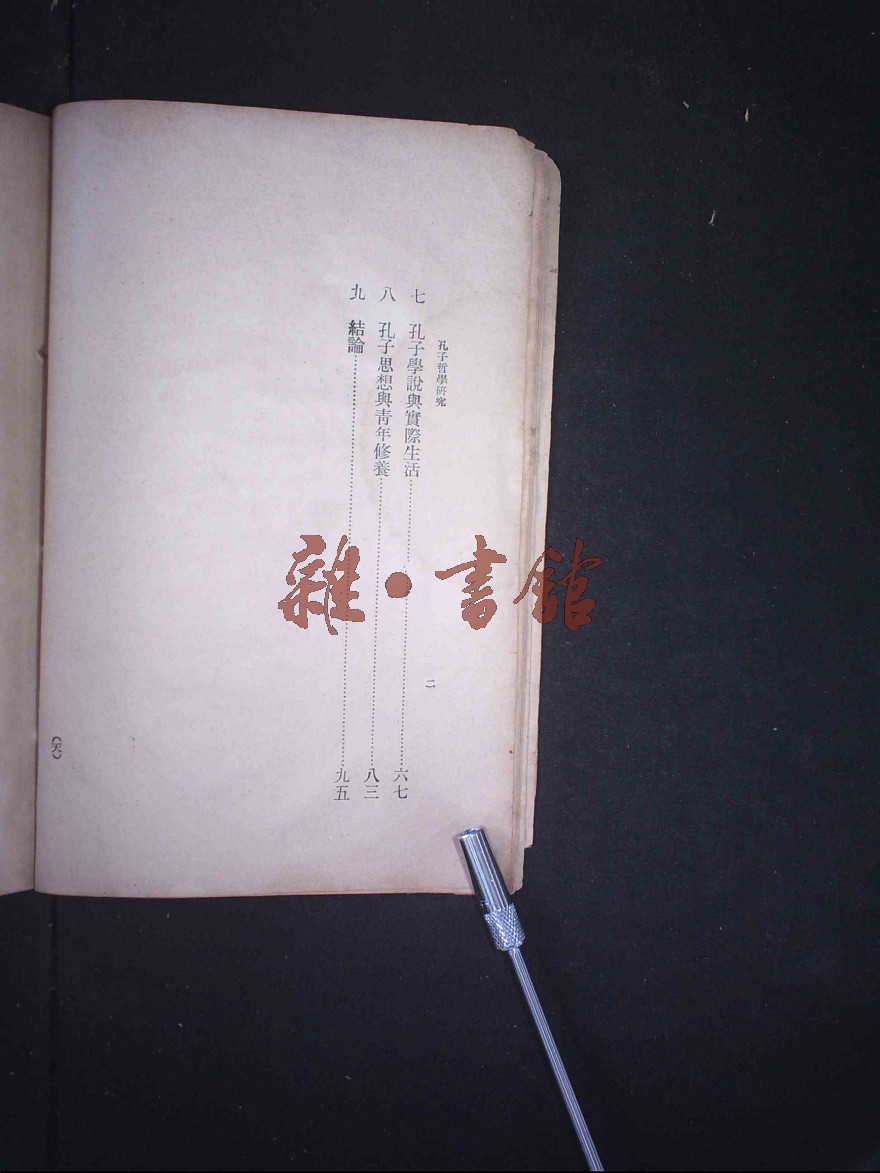 孔子哲學研究
二
七 孔子學說與實際生活……六七
八 孔子思想與靑年修養……八三
九 結論……九五
(天)
雜·書館